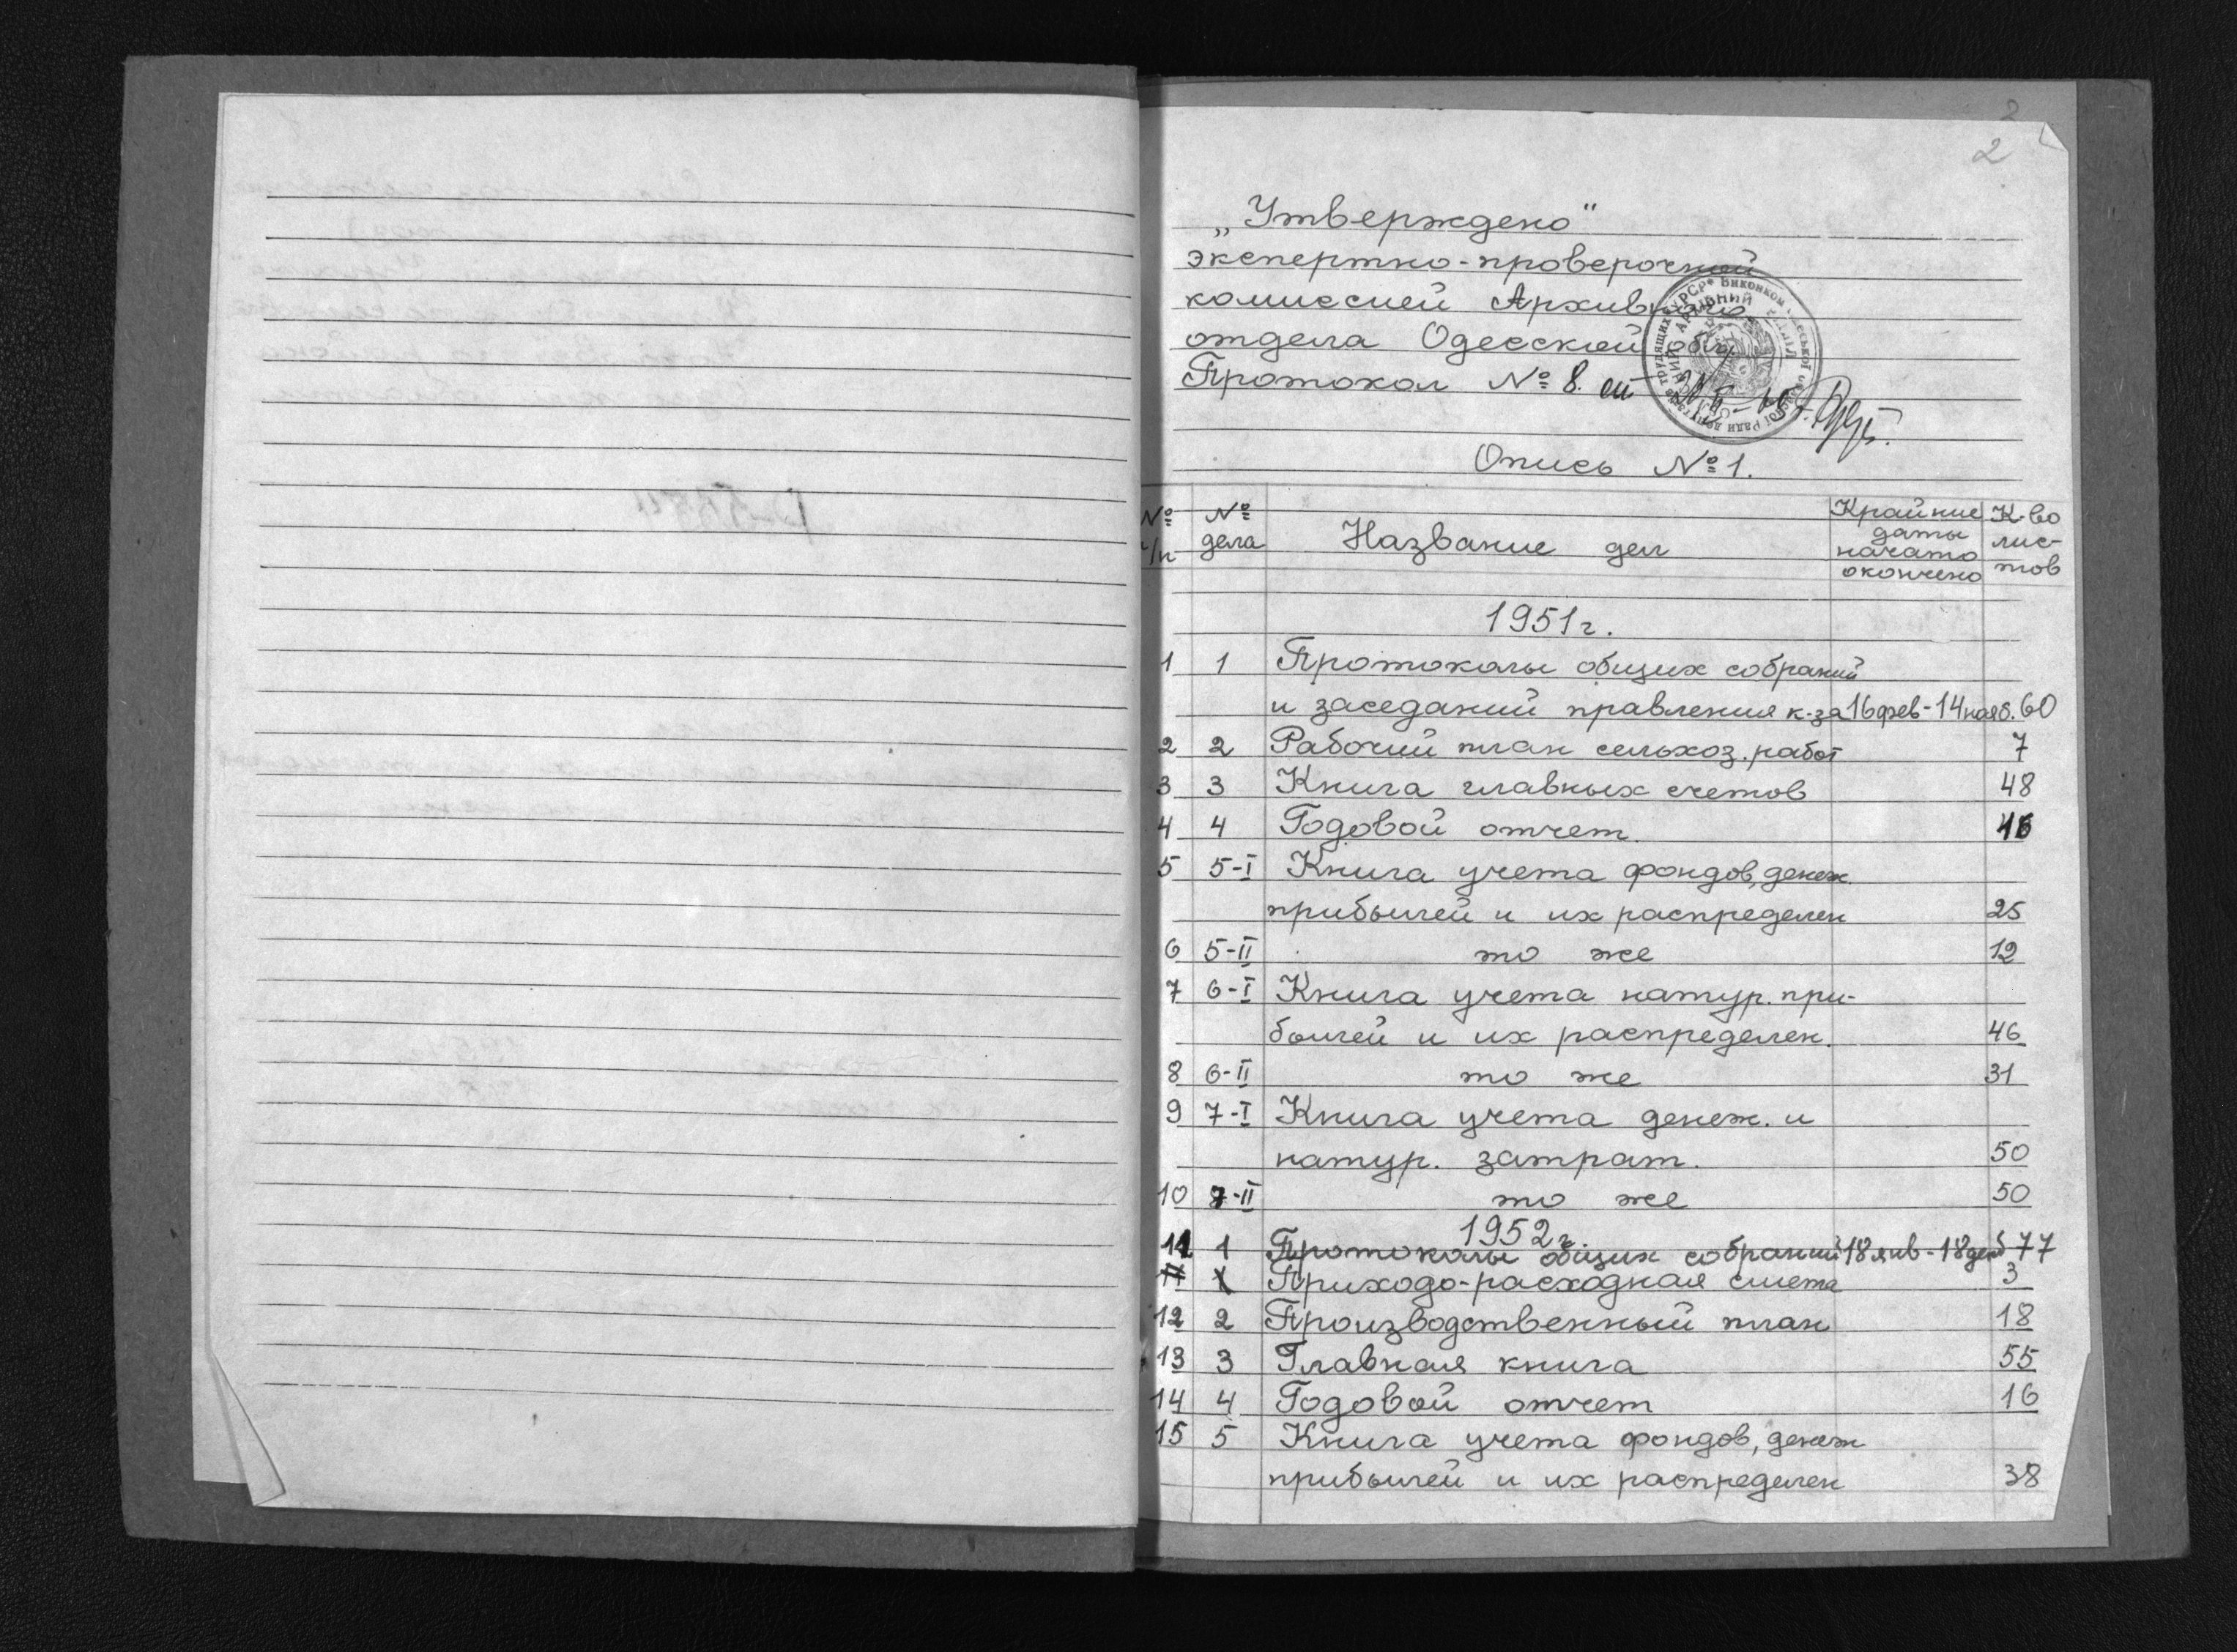 2
2
„Утверждено“
экспертно-проверочной
комиссией Архивного
отдела Одесской обл.
Протокол № 8.
Опись №1.
№ п/п № дела Название дел Крайние даты начато окончено К-во лис-тов
1951г.
1 1 Протоколы общих собраний
и заседаний правления к-за 16фев-14нояб. 60
2 2 Рабочий план сельхоз. работ 7
3 3 Книга главных счетов 48
4 4 Годовой отчет. 16
5 5-I Книга учета фондов, денеж.
прибылей и их распределен 25
6 5-II то же 12
7 6-I Книга учета натур. при-
былей и их распределен. 46
8 6-II то же 31
9 7-I Книга учета денеж. и
натур. затрат. 50
10 7-II то же 50
1952г.
11 1 Протоколы общих собраний 18янв-18дек 77
11 1 Приходо-расходная смета 3
12 2 Производственный план 18
13 3 Главная книга 55
14 4 Годовой отчет 16
15 5 Книга учета фондов, денеж
прибылей и их распределен 38